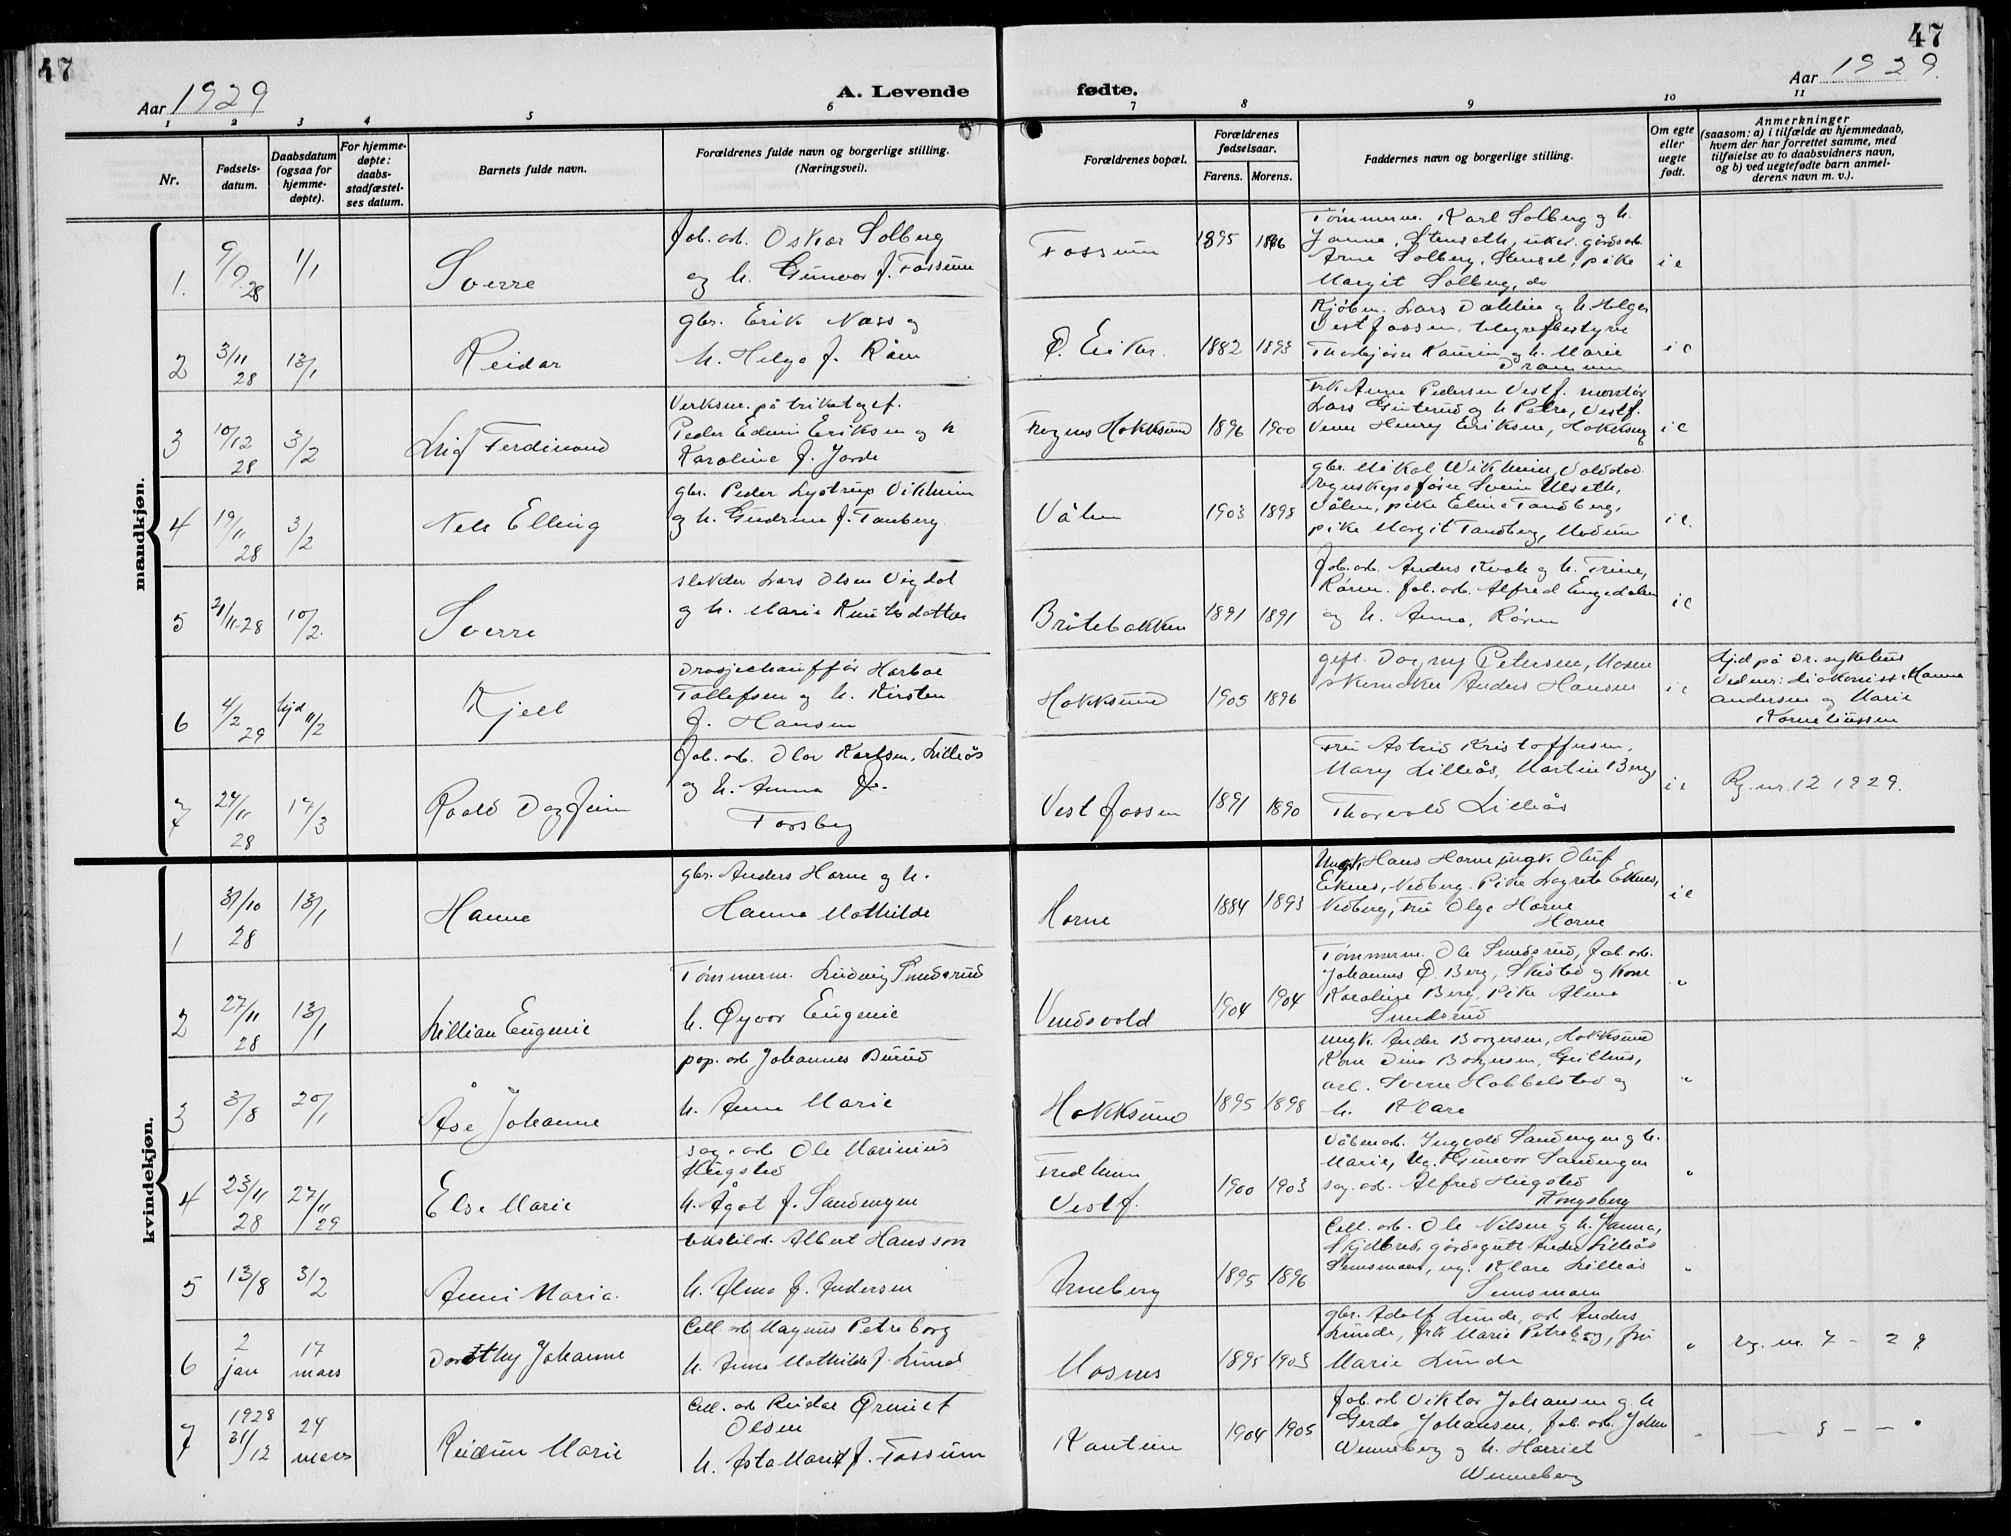 47
47
Aar 1929
A. Levende
fødte.
Aar 1929.
1
2
3
4
5
6
7
8
9
10
11
Nr.
Fødsels-
datum.
Daabsdatum
(ogsaa for
hjemme-
døpte).
For hjemme-
døpte:
daabs-
stadfæstel-
ses datum.
Barnets fulde navn.
Forældrenes fulde navn og borgerlige stilling.
(Næringsvei).
Forældrenes bopæl.
Forældrenes
fødselsaar.
Farens.
Morens.
Faddernes navn og borgerlige stilling.
Om egte
eller
uegte
født.
Anmerkninger
(saasom: a) i tilfælde av hjemmedaab,
hvem der har forrettet samme, med
tilføielse av to daabsvidners navn,
og b) ved uegtefødte barn anmel-
derens navn m. v.).
mandkjøn.
1.
9/9.28
1/1
Sverre
Fab. arb. Oskar Solberg
og h. Gunvor f. Fossum
Fossum
1895
1896
Tømmerm. Karl Solberg og h.
Janna, Stenseth,
Arne Solberg, Stenset, pike
Margit Solberg, do
i e
2
3/11 28
13/1
Reidar
gbr. Erik Næss og
h. Helga f. Råen
Ø. Eiker.
1882
1893
Kjøbm. Lars Dahlin og h. Helga
Vestfossen, telegrafbestyrer
Thorbjørn Kaurin og h. Marie
Drammen
i e
3
10/12 28
3/2
Leif Ferdinand
Verksm. på trikotagef.
Peder Edvin Eriksen og h
Karoline f. Jorde
Hokksund
1896
1900
Frk. Anna Pedersen Vestf. montør
Lars Ginterud og h Petra, Vestf.
Henry Eriksen, Hokksund
i e
4
19/11 28
3/2
Nels Elling
gbr. Peder Lystrup Vikheim
og h. Gudrun f. Tanberg.
Vålen
1903
1898
gbr. Mikal Wikheim,
regnskapsfører Svein Ulseth,
Vålen, pike Eline Tandberg,
pike Margit Tandberg, Modum
i e.
5
21/11-28
10/2.
Sverre
slakter Lars Olsen Vigdal
og h. Marie Knutsdatter
Bråtebakken
1891
1891
Fab. arb. Anders Kvale og h. Trine,
Røren. fab. arb. Alfred Engedalen
og h. Anna, Røren
i e
6
4/2 29
hjd 11/2
Kjell
Drosjechauffør Harbae
Tollefsen og h. Kirsten
f. Hansen
Hokksund
1905
1896
gift. Dagny Petersen, Moen
skomaker Anders Hansen
i e
Hjd på Dr. sykehus
Vidner: diakonisse Hanna
Andersen og Marie
Korneliussen
7
24/11 28
17/3
Roald Dagfinn
Fab. arb. Olav Karlsen, Lilleås
og h. Anna f.
Forsberg
Vestfossen
1891
1890
Fru Astrid Kristoffersen,
Mary Lilleås, Martin Berg,
Thorvald Lilleås
i e
Rg. nr. 12 1929.
kvindekjøn.
1
31/10 28
13/1
Hanne
gbr. Anders Horne og h.
Hanna Mathilde
Horne
1884
1893
Ungk. Hans Horne, ungk. Oluf
Eknes, Nedberg. Pike Dagrete Eknes,
Nedberg, Fru Olga Horne
Horne
i e
2
27/11 28
13/1
Lillian Eugenie
Tømmerm. Ludvig Smedsrud
h. Øyvor Eugenie
Vendsvold
1904
1904
Tømmerm. Ole Smedsrud, fab. arb.
Johannes Ø. Berg, Skistad og kone
Karoline Berg. Pike Alma
Smedsrud
"
3
3/8
20/1
Åse Johanne
pap. arb Johannes Burud
h. Anna Marie
Hokksund
1895
1898
ungk. Ander Borgersen, Hokksund
Kone Dina Borgersen,
arb. Sverre Habbelstad og
h. Klara
"
4
23/11 28
27/11 29
Else Marie
sag. arb Ole Marinius
Haugstad
h. Ågot f. Sandengen
Fredheim
Vestf.
1900
1903
Våbenarb. Ingvald Sandengen og h.
Marie, Ug. Gunvor Sandengen
sag. arb. Alfred Haugstad
Kongsberg
"
5
13/8
3/2
Anni Maria.
tekstilarb. Albert Hansson
h. Alma f. Andersen
Arneberg
1895
1896
Cell. arb. Ole Nilsen og h. Janna,
Skjelbred, gårdsgutt Ander Lilleås
Semsmoen, ug. Klara Lilleås
Semsmoen
"
6
2
jan
17
mars
Dorothy Johanne
Cell. arb Magnus Petreborg
h. Anna Mathilde f. Lund
Mosnes
1895
1903
gbr. Adolf Lunde, arb Anders
Lunde, frk Marie Petreborg, fru
Marie Lunde
"
rg. nr. 7 - 29
7
1928
31/12
24
mars
Reidun Marie
Cell. arb Reidar Ørnulf
Olsen
h. Asta Marit f. Fossum
Kantum
1904
1905
Fab. arb Viktor Johansen og h
Gerda Johansen, fab. arb. John
Wenneberg og h. Harriet
Wenneberg
"